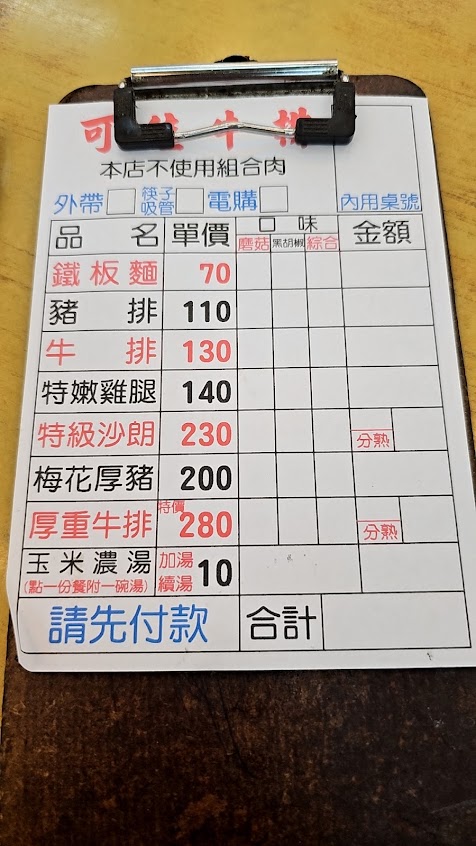 可佳牛排
本店不使用組合肉
外帶 筷子吸管 電購 內用桌號
品名 單價 口味 金額
磨菇 黑胡椒 綜合
鐵板麵 70
豬排 110
牛排 130
特嫩雞腿 140
特級沙朗 230 分熟
梅花厚豬 200
厚重牛排 特價 280 分熟
玉米濃湯 加湯 10
(點一份餐附一碗湯) 續湯
請先付款 合計